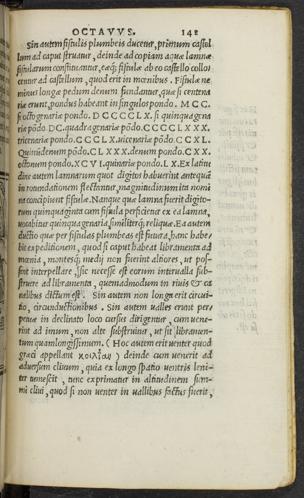 OCTAVVS. 142
Sin autem fistulis plumbeis ducetur, primum castel
lum ad caput struatur, deinde ad copiam aquæ lamnæ
fistularum constituantur, eæq; fistulæ ab eo castello collo
centur ad castellum, quod erit in mœnibus. Fistulæ ne
minus longæ pedum denum fundantur, quæ si centena
riæ erunt, pondus habeant in singulos pondo. M CC.
si octogenariæ pondo. D CCCC LX. si quinquagena
riæ pōdo DC. quadragenariæ pōdo. CCCC LXXX.
tricenariæ pondo. CCC LX. uicenariæ pōdo. CC XL.
Quinūdenum pōdo. C LXXX. denum pondo. C XX.
octonum pondo. XC VI. quinariæ pondo. L X. Ex latitu
dine autem lamnarum quot digitos habuerint antequā
in rotundationem flectantur, magnitudinum ita nomi
na concipiunt fistulæ. Nanque quæ lamna fuerit digito-
rum quinquaginta cum fistula perficietur ex ea lamna,
uocabitur quinquagenaria, similiterq; reliquæ. Ea autem
ductio quæ per fistulas plumbeas est futura, hanc habe
bit expeditionem, quod si caput habeat libramenta ad
mœnia, montesq; medij non fuerint altiores, ut pos-
sint interpellare, sic necesse est eorum interualla sub-
struere ad libramenta, quemadmodum in riuis & ca
nalibus dictum est. Sin autem non longe erit circui-
tio, circunductionibus. Sin autem ualles erunt per
petuæ in declinato loco cursus dirigentur, cum uene-
rint ad imum, non alte substruitur, ut sit libramen-
tum quam longissimum. (Hoc autem erit uenter quod
græci appellant κοιλίαν) deinde cum uenerit ad
aduersum cliuum, quia ex longo spatio uentris leni-
ter tumescit, tunc exprimatur in altitudinem sum-
mi cliui, quod si non uenter in uallibus factus fuerit,